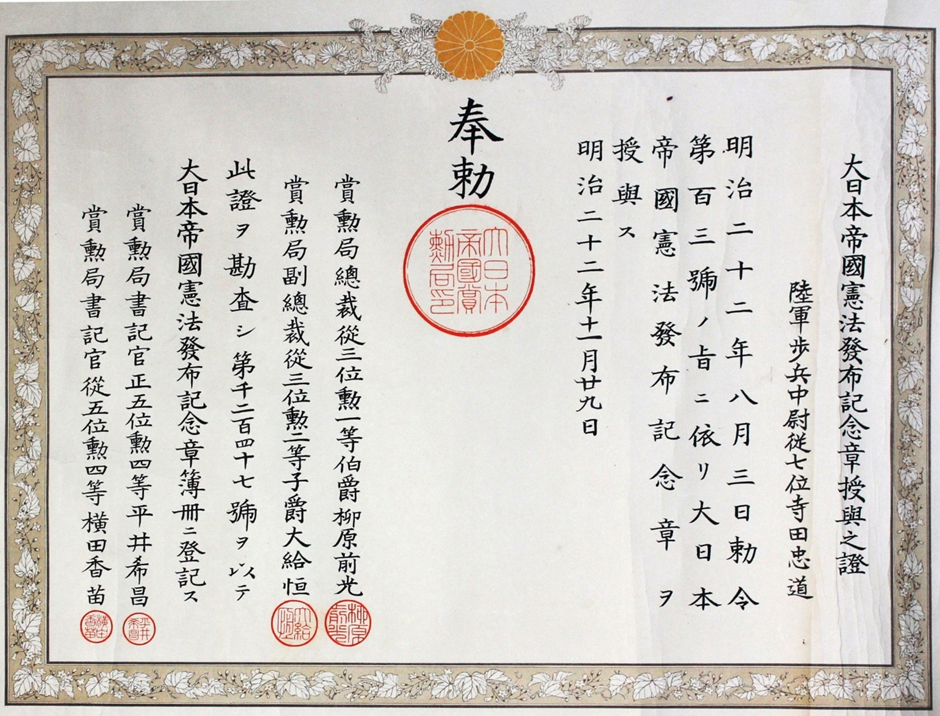 大日本帝國憲法發布記念章授與之證
陸軍歩兵中尉從七位寺田忠道
明治二十二年八月三日勅令
第百三號ノ旨ニ依リ大日本
帝國憲法發布記念章ヲ
授與ス
明治二十二年十一月廿九日
奉勅
大日本
帝國賞
勳局印
賞勲局總裁從三位勲一等伯爵柳原前光
賞勲局副總裁從三位勲二等子爵大給恒
此證ヲ勘査シ第千二百四十七號ヲ以テ
大日本帝國憲法發布記念章簿冊ニ登記ス
賞勲局書記官正五位勲四等平井希昌
賞勲局書記官從五位勲四等横田香苗